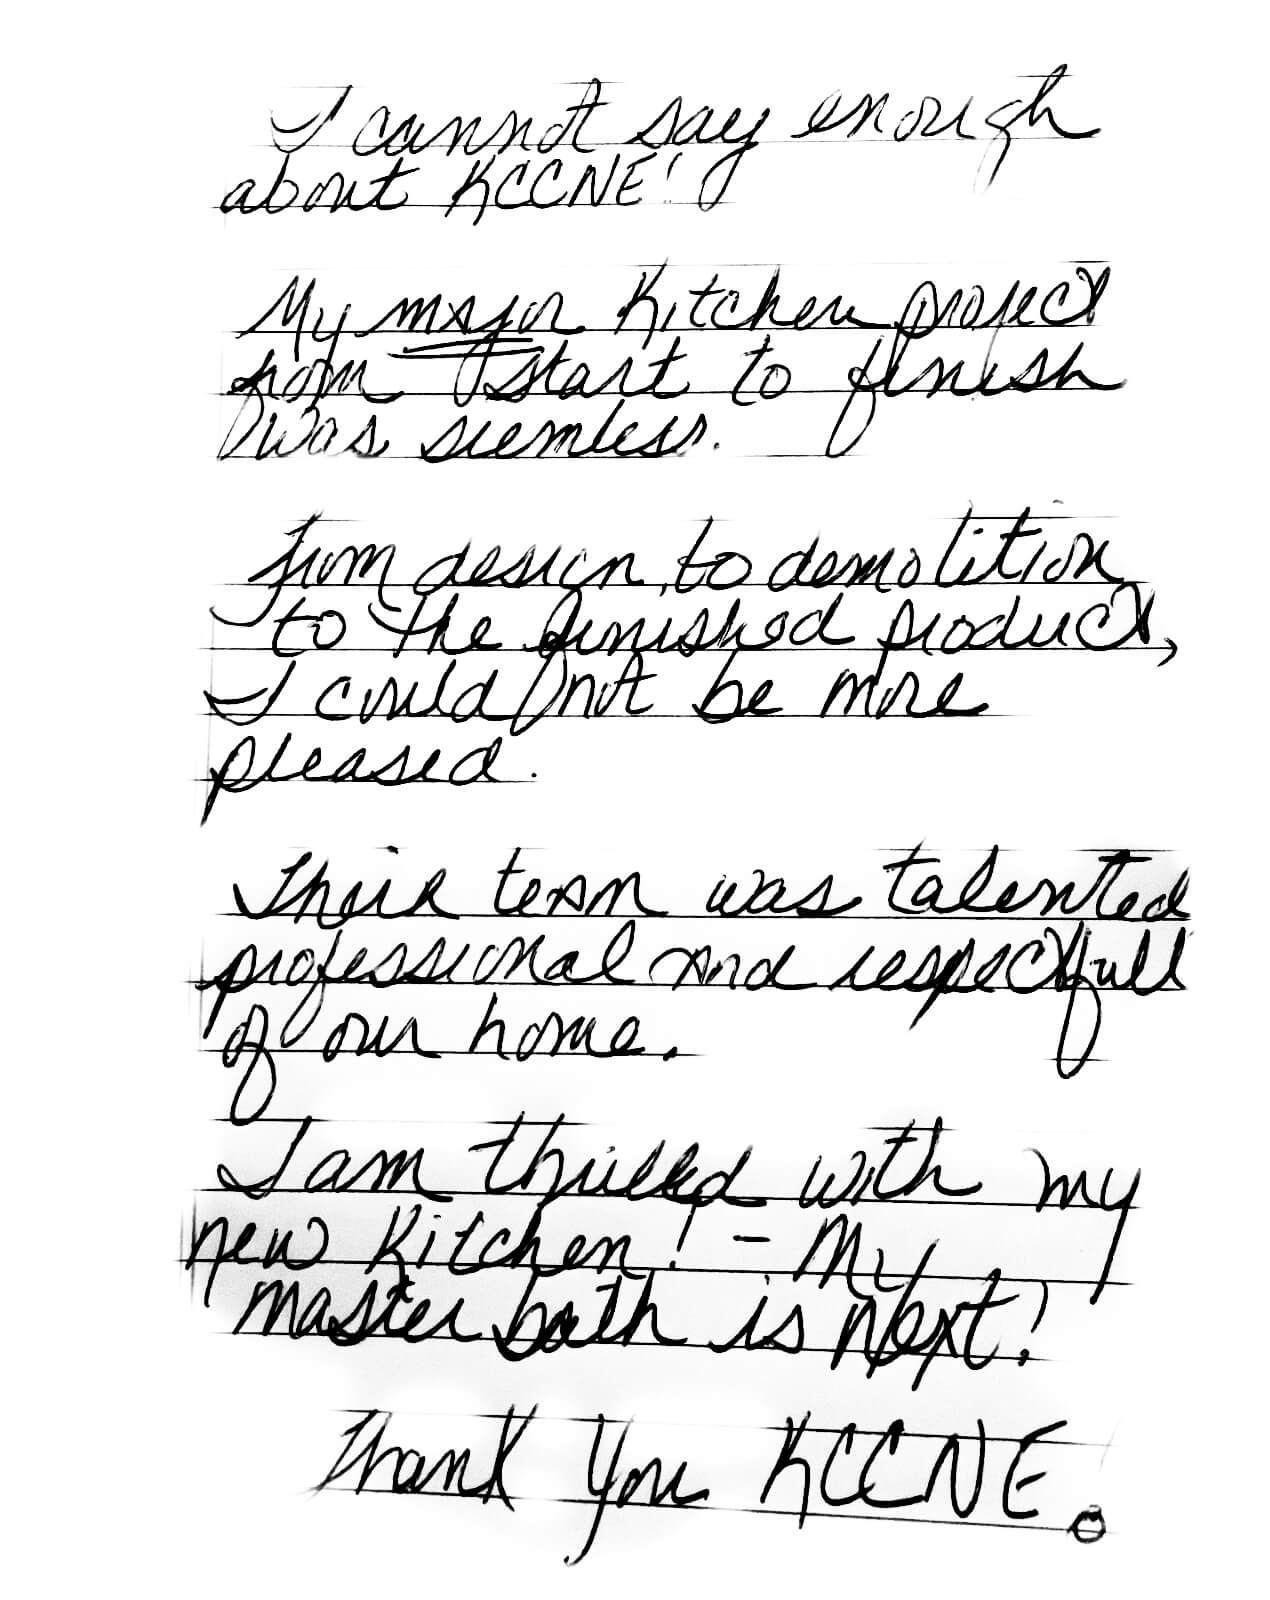 I cannot say enough
about KCCNE!
My major Kitchen project
from start to finish
was seemless.
From design, to demolition
to the finished product,
I could not be more
pleased.
Their team was talented
professional and respectfull
of our home.
I am thrilled with my
new Kitchen! - My
master bath is next!
Thank you KCCNE!